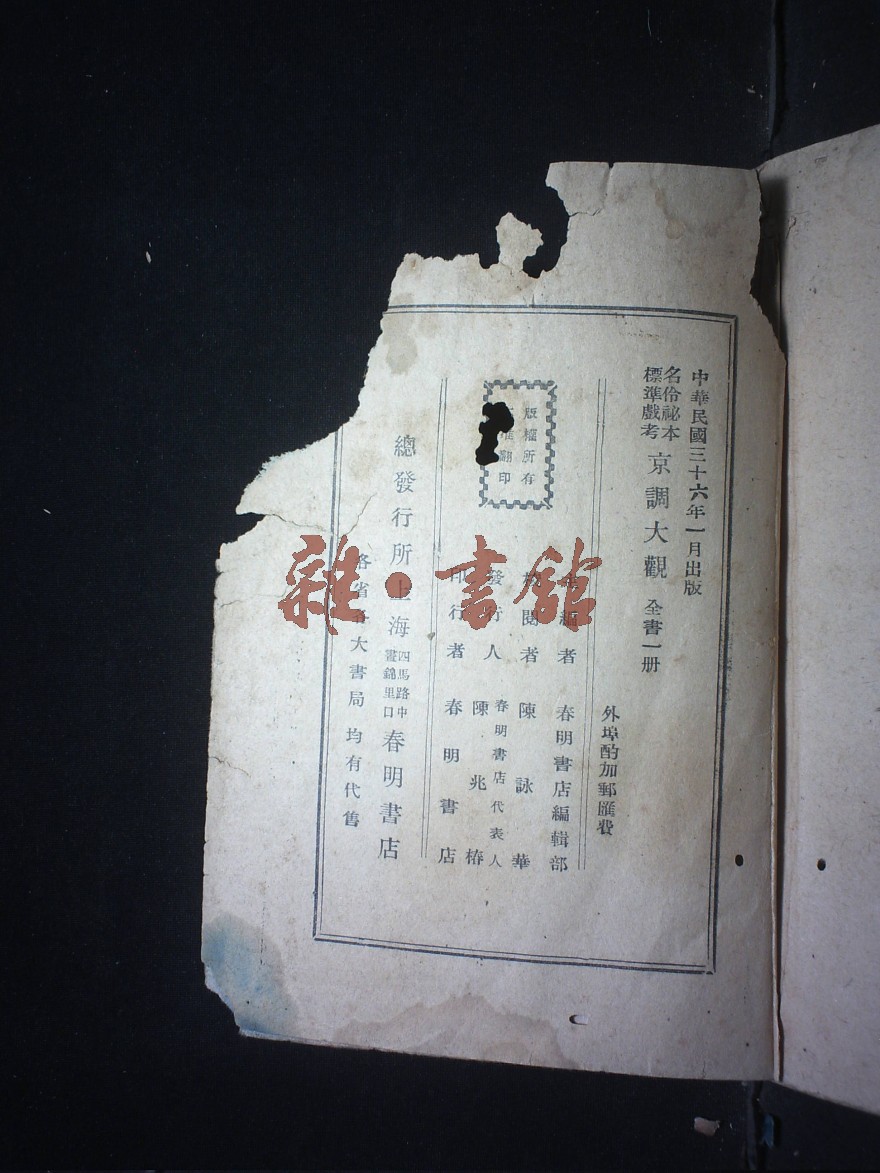 中華民國三十六年一月出版
名伶祕本
標準戲考
京調大觀 全書一册
外埠酌加郵匯費
編者 春明書店編輯部
校閱者 陳詠華
發行人 春明書店代表人
陳兆椿
印行者 春明書店
版權所有
翻印
總發行所上海 四馬路中
晝錦里口
春明書店
各省各大書局均有代售
雜·書館